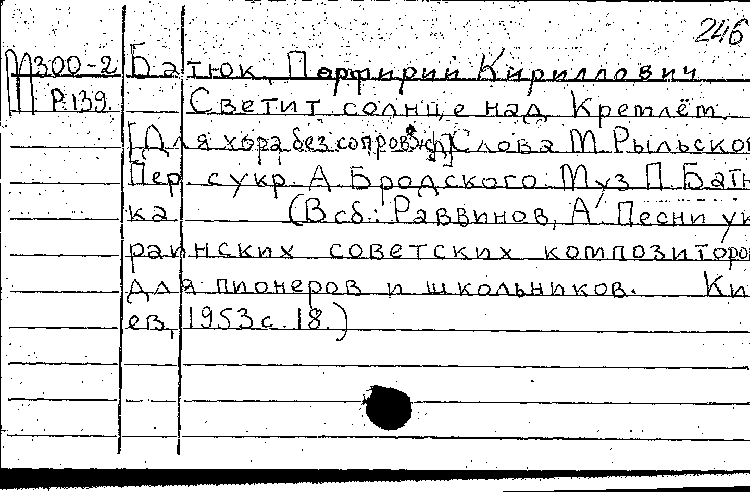 246
М300-2 Батюк, Порфирий Кириллович
Р.139. Светит солнце над Кремлём.
[Для хора без сопровожд.] Слова М. Рыльског
Пер. с укр. А. Бродского. Муз. П. Батю
ка. (В сб.: Раввинов, А. Песни ук
раинских советских композиторов
для пионеров и школьников. Ки
ев, 1953 с. 18.)